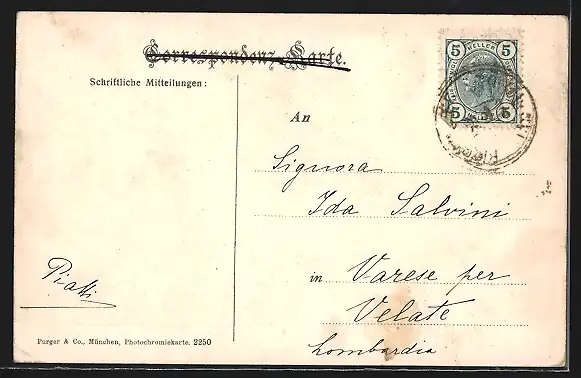 Correspondenz-Karte.
Schriftliche Mitteilungen:
5 HELLER 5
5 5
An
Signora
Ida Salvini
in Varese per
Velate
Lombardia
Piatti
Purger & Co., München, Photochromiekarte. 2250